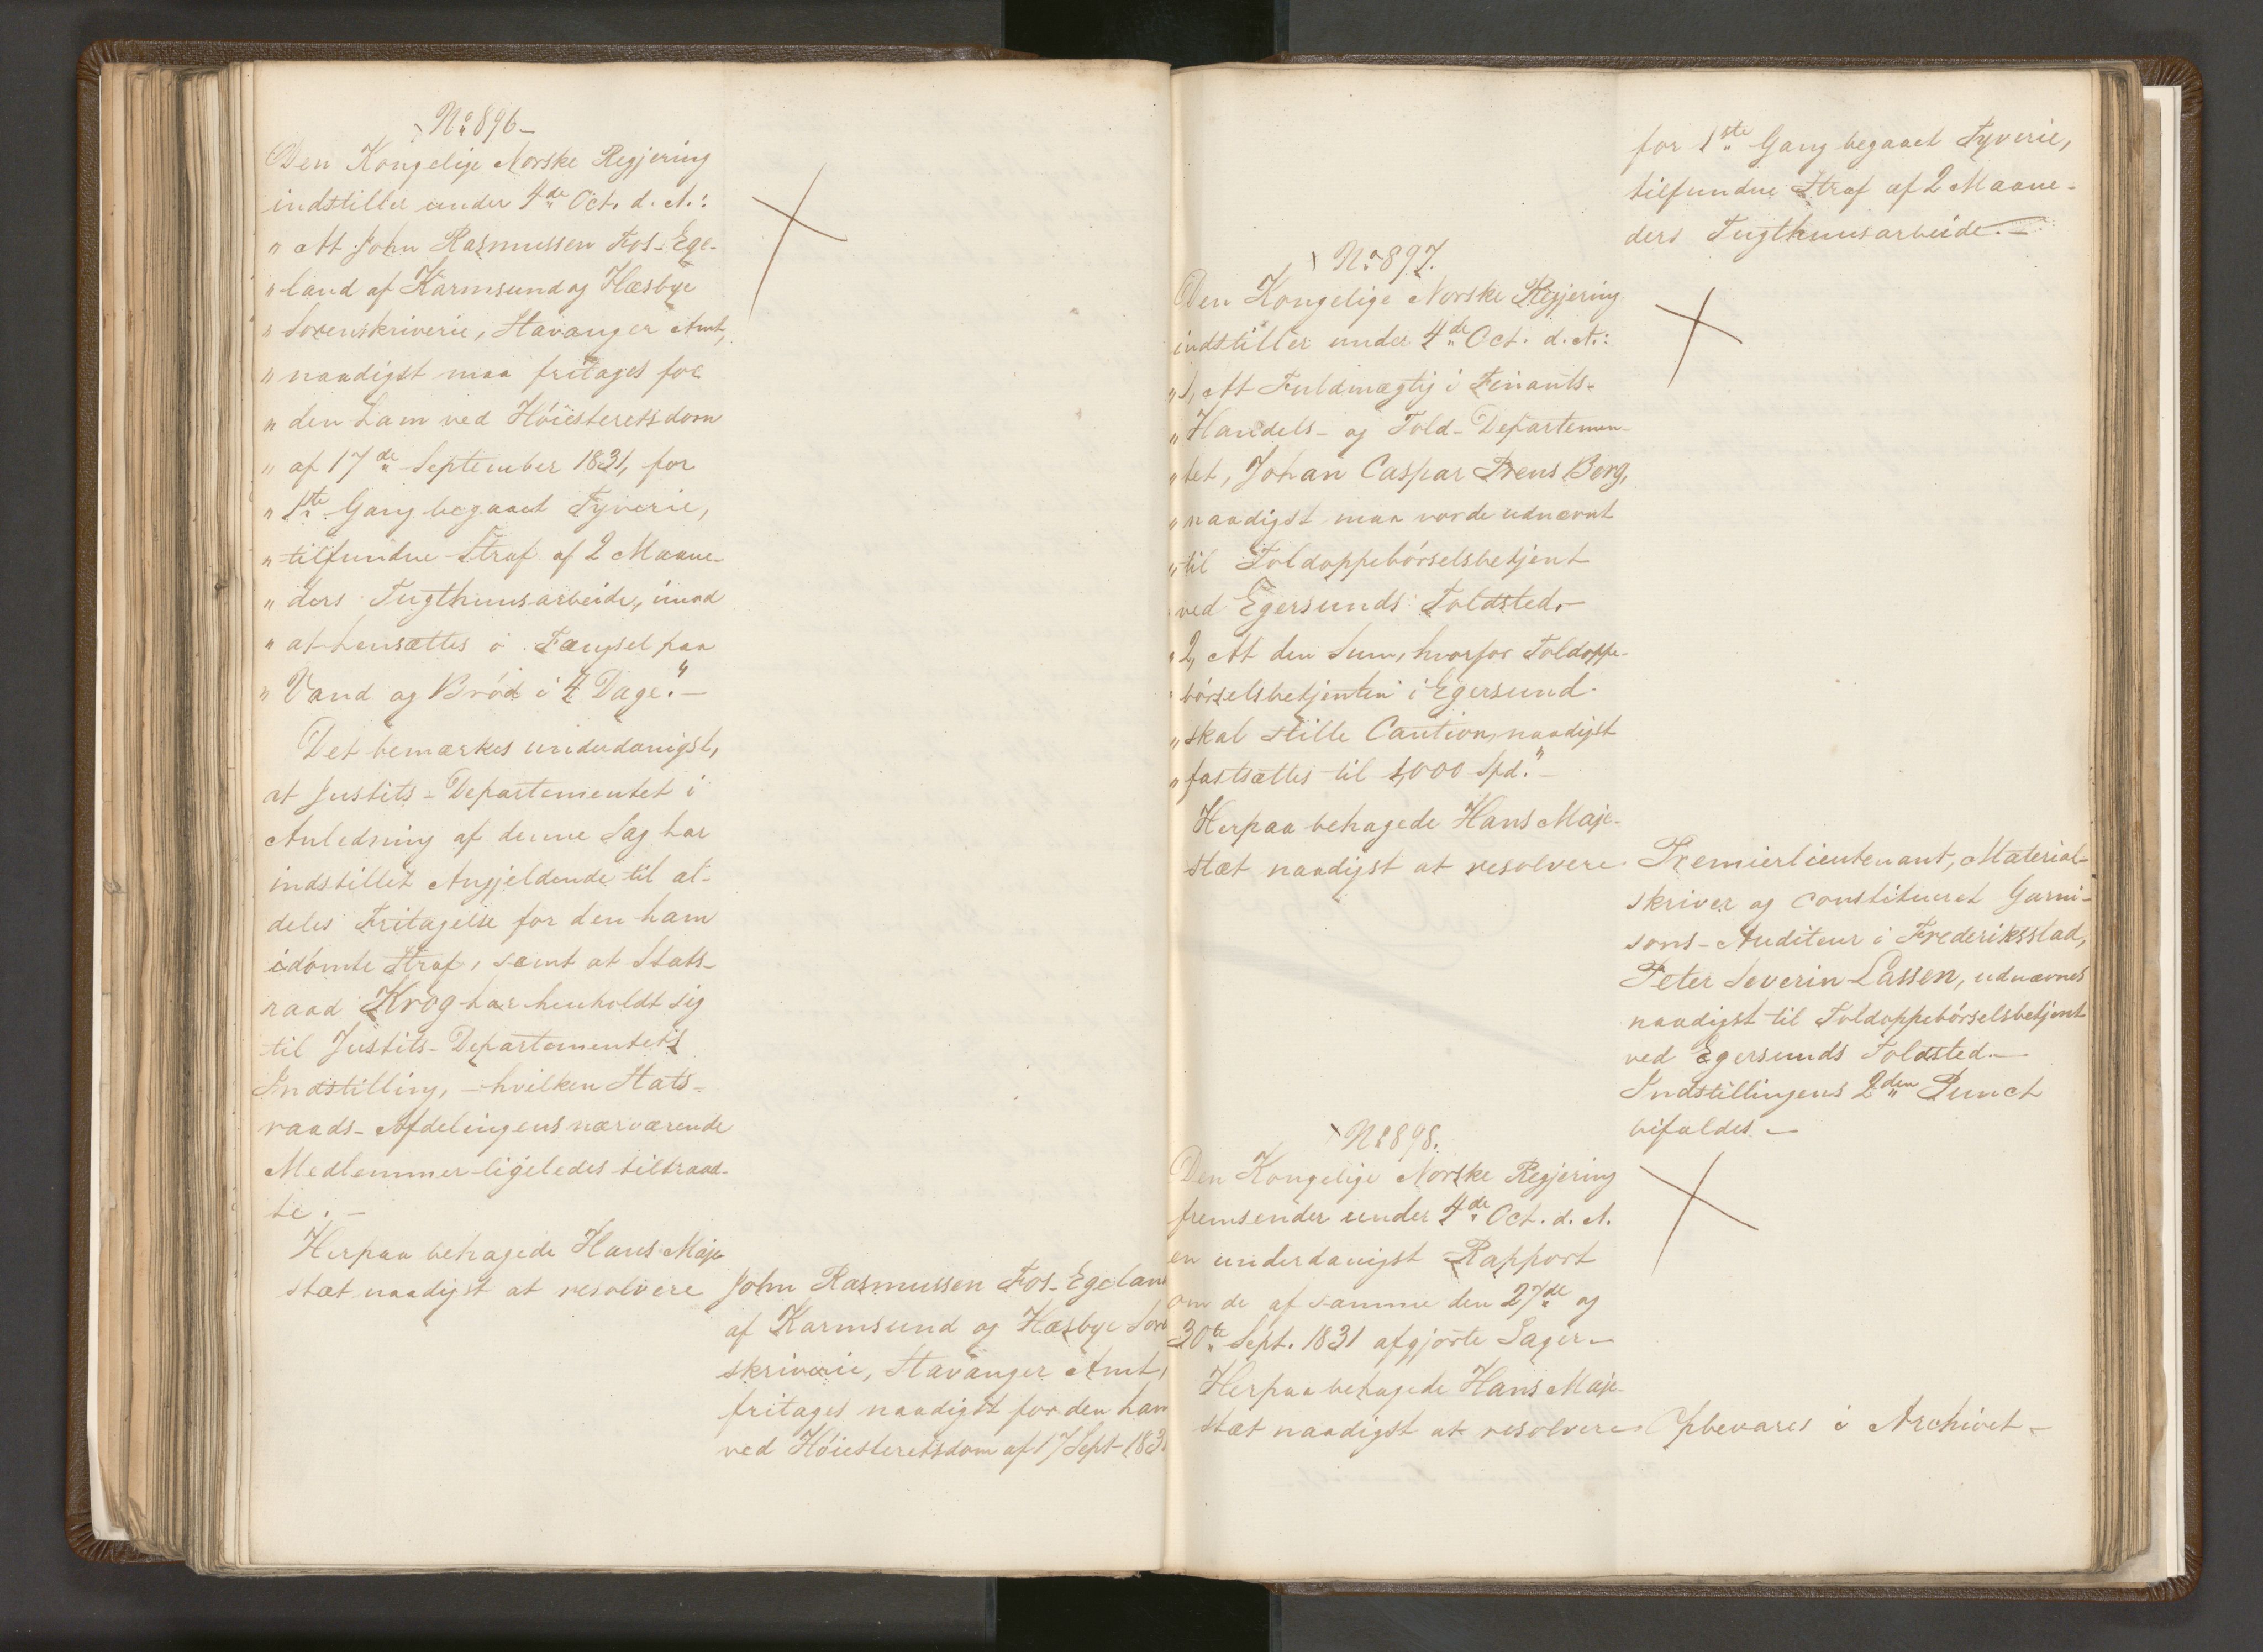 No 896-
Den Kongelige Norske Regjering
indstiller under 4de Oct. d. A.:
" At John Rasmussen Fos-Ege-
" land af Karmsund og Hæsbye
" Sorenskriverie, Stavanger Amt,
" naadigst maa fritages for
" den ham ved Høiesteretsdom
" af 17de September 1831, for
" 1ste Gang begaaet Tyverie,
" tilfundne Straf af 2 Maane-
" ders Tugthuusarbeide, imod
" at hensættes i Fængsel paa
" Vand og Brød i 4 Dage." -
Det bemærkes underdanigst,
at Justits-Departementet i
Anledning af denne Sag har
indstillet Angjeldende til al-
deles Fritagelse for den ham
idømte Straf, samt at Stats-
raad Krog har henholdt sig
til Justits-Departementets
Indstilling, - hvilken Stats-
raads-Afdelingens nærværende
Medlemmer ligeledes tiltraad-
te. -
Herpaa behagede Hans Maje-
stæt naadigst at resolvere
John Rasmussen Fos-Egelan
af Karmsund og Hæsbye Sore
skriverie, Stavanger Amt,
fritages naadigst for den ham
ved Høiesteretsdom af 17 Sept. 183
for 1ste Gang begaaet Tyverie,
tilfundne Straf af 2 Maane-
ders Tugthuusarbeide. -
No 897.
Den Kongelige Norske Regjering
indstiller under 4de Oct. d. A.:
" 1, At Fuldmægtig i Finants-
" Handels- og Told-Departemen-
" tet, Johan Caspar Prens Berg,
" naadigst maa vorde udnævnt
" til Toldoppebørselsbetjent
" ved Egersunds Toldsted. -
" 2, At den Sum, hvorfor Toldoppe-
" børselsbetjenten i Egersund
" skal stille Caution, naadigst
" fastsættes til 1,000 Spd." -
Herpaa behagede Hans Maje-
stæt naadigst at resolvere
Premierlieutenant, Material-
skriver og constitueret Garni-
sons-Auditeur i Frederiksstad,
Peter Severin Lassen, udnævnes
naadigst til Toldoppebørselsbetjent
ved Egersunds Toldsted. -
Indstillingens 2den Punct
bifaldes. -
No 898.
Den Kongelige Norske Regjering
fremsender under 4de Oct. d. A.
en underdanigst Rapport
om de af samme den 27de og
30te Sept. 1831 afgjorte Sager. -
Herpaa behagede Hans Maje-
stæt naadigst at resolvere
Opbevares i Archivet. -